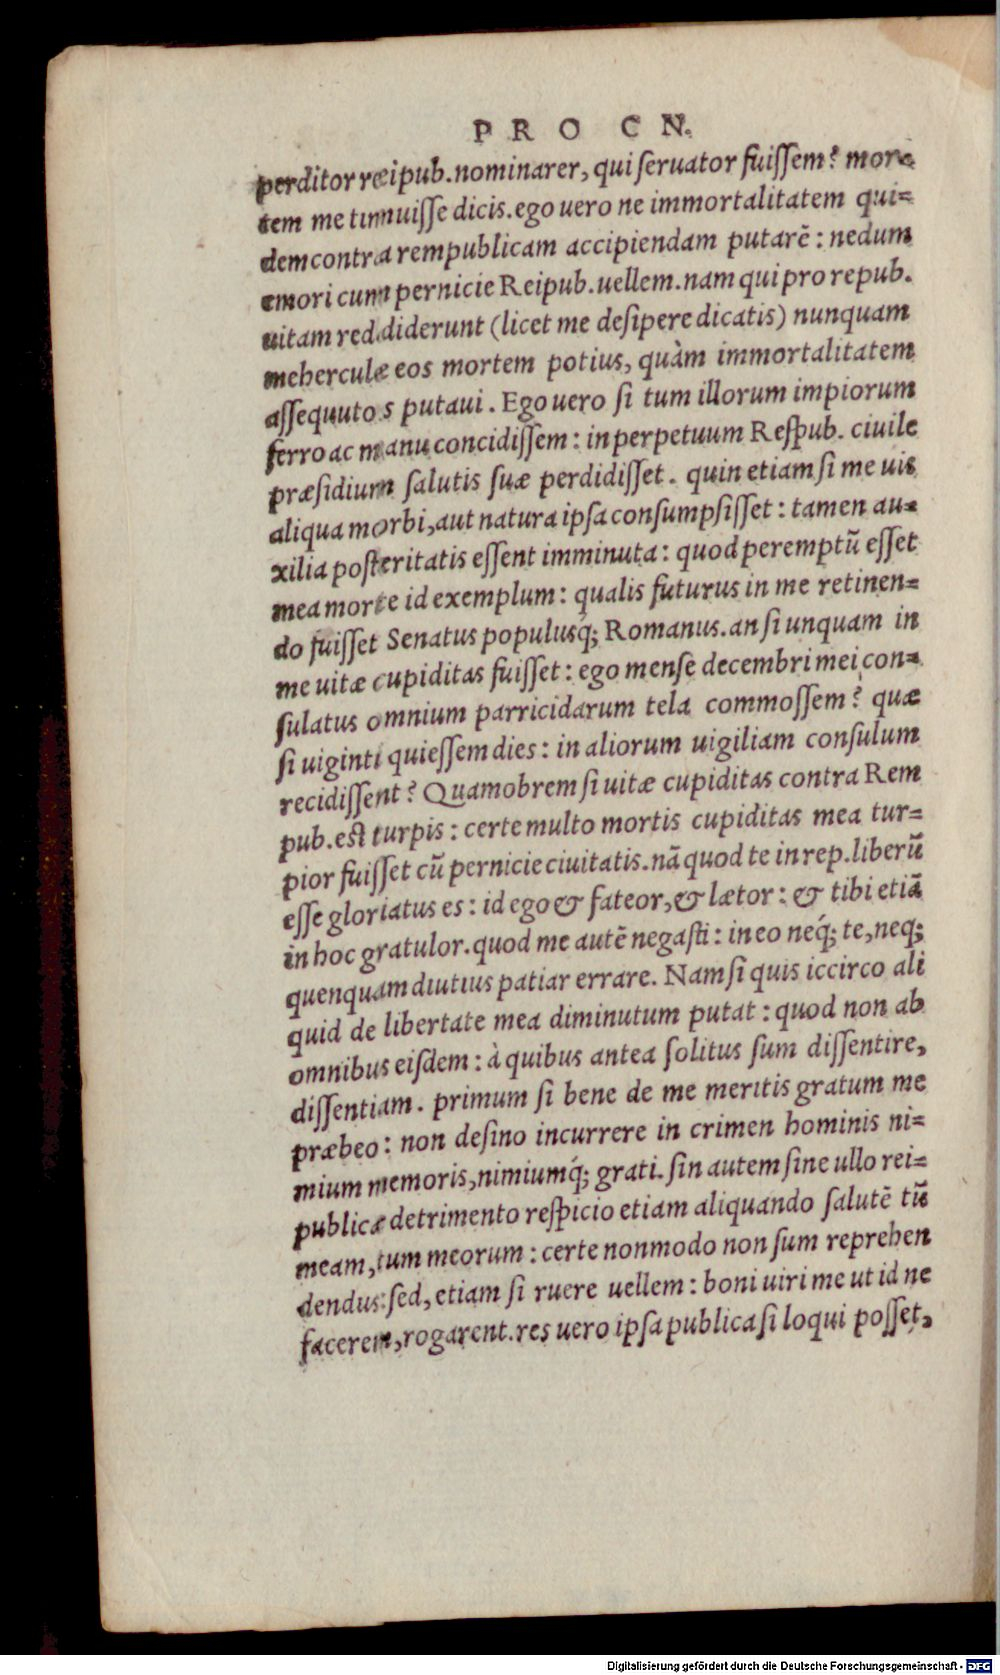 PRO CN.
perditor reipub. nominarer, qui ſeruator fuiſſem? mor=
tem me timuiſſe dicis. ego uero ne immortalitatem qui=
dem contra rempublicam accipiendam putarē: nedum
emori cum pernicie Reipub. uellem. nam qui pro repub.
uitam reddiderunt (licet me deſipere dicatis) nunquam
mehercule eos mortem potius, quàm immortalitatem
aſſequutos putaui. Ego uero ſi tum illorum impiorum
ferro ac manu concidiſſem: in perpetuum Reſpub. ciuile
præſidium ſalutis ſuæ perdidiſſet. quin etiam ſi me uis
aliqua morbi, aut natura ipſa conſumpſiſſet: tamen au=
xilia poſteritatis eſſent imminuta: quod peremptū eſſet
mea morte id exemplum: qualis futurus in me retinen=
do fuiſſet Senatus populusq́; Romanus. an ſi unquam in
me uitæ cupiditas fuiſſet: ego menſe decembri mei con=
ſulatus omnium parricidarum tela commoſſem? quæ
ſi uiginti quieſſem dies: in aliorum uigiliam conſulum
recidiſſent? Quamobrem ſi uitæ cupiditas contra Rem
pub. eſt turpis: certe multo mortis cupiditas mea tur=
pior fuiſſet cū pernicie ciuitatis. nã quod te in rep. liberū
eſſe gloriatus es: id ego & fateor, & lætor: & tibi etiã
in hoc gratulor. quod me autē negaſti: in eo neq́; te, neq;
quenquam diutius patiar errare. Nam ſi quis iccirco ali
quid de libertate mea diminutum putat: quod non ab
omnibus eiſdem: à quibus antea ſolitus ſum diſſentire,
diſſentiam. primum ſi bene de me meritis gratum me
præbeo: non deſino incurrere in crimen hominis ni=
mium memoris, nimiumq́; grati. ſin autem ſine ullo rei=
publicæ detrimento reſpicio etiam aliquando ſalutē tū
meam, tum meorum: certe non modo non ſum reprehen
dendus: ſed, etiam ſi ruere uellem: boni uiri me ut id ne
facerem, rogarent. res uero ipſa publica ſi loqui poſſet,
Digitalisierung gefördert durch die Deutsche Forschungsgemeinschaft - DFG